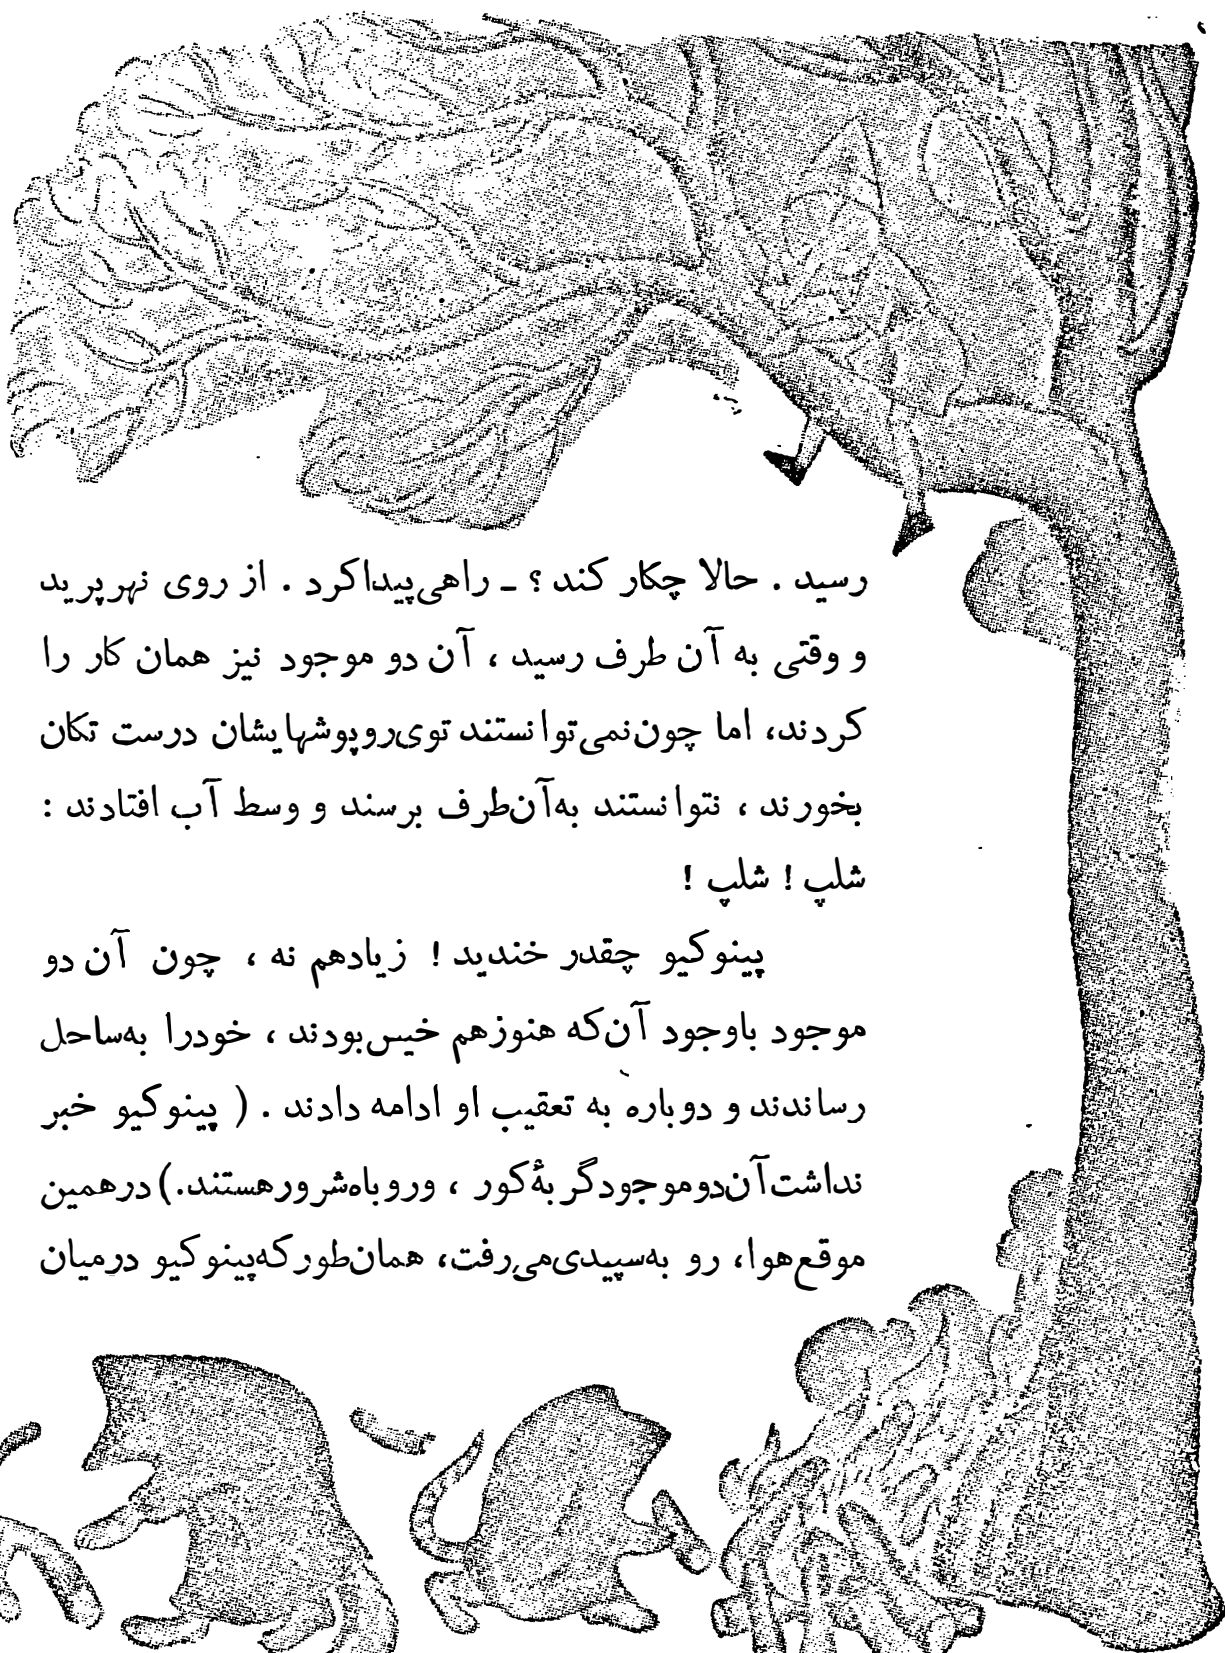 رسید . حالا چکار کند ؟ ـ راهی‌پیداکرد . از روی نهرپرید
و وقتی به آن طرف رسید ، آن دو موجود نیز همان کار را
کردند، اما چون‌نمی‌توانستند توی‌روپوشهایشان درست تکان
بخورند ، نتوانستند به‌آن‌طرف برسند و وسط آب افتادند :
شلپ ! شلپ !
پینوکیو چقدر خندید ! زیادهم نه ، چون آن دو
موجود باوجود آن‌که هنوزهم خیس‌بودند ، خودرا به‌ساحل
رساندند و دوباره به تعقیب او ادامه دادند . ( پینوکیو خبر
نداشت‌آن‌دوموجودگربهٔ‌کور ، وروباه‌شرورهستند.) درهمین
موقع‌هوا، رو به‌سپیدی‌می‌رفت، همان‌طورکه‌پینوکیو درمیان